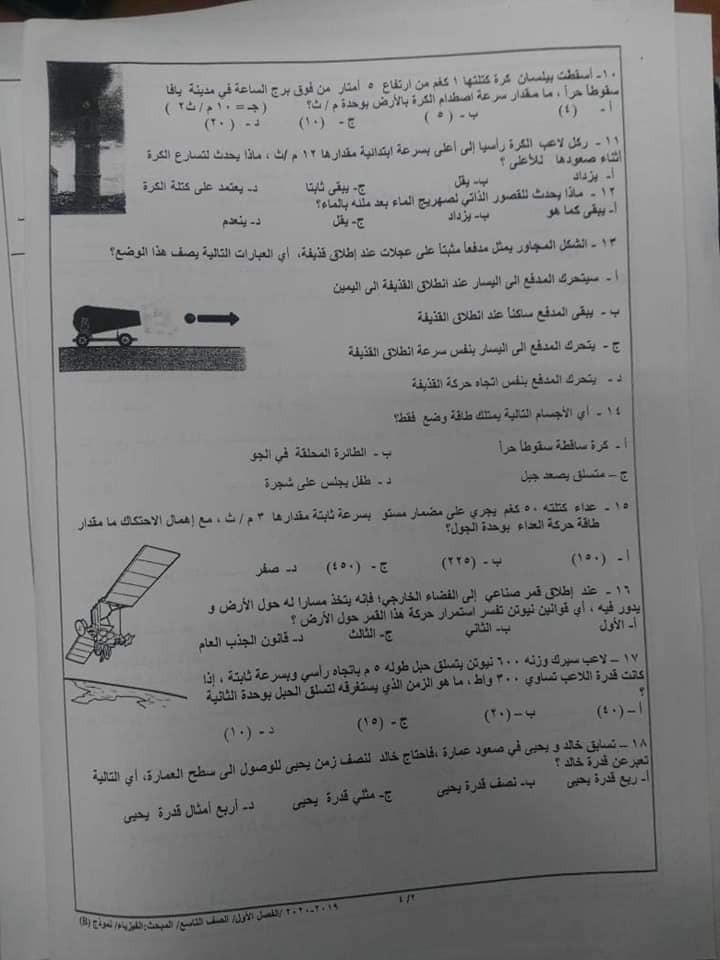 ١٠- أسقطت بيلسان كرة كتلتها ١ كغم من ارتفاع ٥ أمتار من فوق برج الساعة في مدينة يافا
سقوطاً حراً ، ما مقدار سرعة اصطدام الكرة بالأرض بوحدة م / ث؟ ( جـ = ١٠ م / ث٢ )
أ - (٤) ب - (٥) ج - (١٠) د - (٢٠)
١١ - ركل لاعب الكرة رأسيا إلى أعلى بسرعة ابتدائية مقدارها ١٢ م /ث ، ماذا يحدث لتسارع الكرة
أثناء صعودها للأعلى ؟
أ- يزداد ب- يقل ج- يبقى ثابتا د- يعتمد على كتلة الكرة
١٢ - ماذا يحدث للقصور الذاتي لصهريج الماء بعد ملئه بالماء؟
أ- يبقى كما هو ب- يزداد ج- يقل د- ينعدم
١٣ - الشكل المجاور يمثل مدفعاً مثبتاً على عجلات عند إطلاق قذيفة، أي العبارات التالية يصف هذا الوضع؟
أ - سيتحرك المدفع الى اليسار عند انطلاق القذيفة الى اليمين
ب - يبقى المدفع ساكناً عند انطلاق القذيفة
ج - يتحرك المدفع الى اليسار بنفس سرعة انطلاق القذيفة
د - يتحرك المدفع بنفس اتجاه حركة القذيفة
١٤ - أي الأجسام التالية يمتلك طاقة وضع فقط؟
أ - كرة ساقطة سقوطاً حراً ب - الطائرة المحلقة في الجو
ج – متسلق يصعد جبل د - طفل يجلس على شجرة
١٥ - عداء كتلته ٥٠ كغم يجري على مضمار مستو بسرعة ثابتة مقدارها ٣ م / ث ، مع إهمال الاحتكاك ما مقدار
طاقة حركة العداء بوحدة الجول؟
أ - (١٥٠) ب - (٢٢٥) ج - (٤٥٠) د- صفر
١٦ - عند إطلاق قمر صناعي إلى الفضاء الخارجي؛ فإنه يتخذ مسارا له حول الأرض و
يدور فيه ، أي قوانين نيوتن تفسر استمرار حركة هذا القمر حول الأرض ؟
أ- الأول ب- الثاني ج- الثالث د- قانون الجذب العام
١٧ – لاعب سيرك وزنه ٦٠٠ نيوتن يتسلق حبل طوله ٥ م باتجاه رأسي وبسرعة ثابتة ، إذا
كانت قدرة اللاعب تساوي ٣٠٠ واط ، ما هو الزمن الذي يستغرقه لتسلق الحبل بوحدة الثانية
؟
أ – (٤٠) ب – (٢٠) ج - (١٥) د - (١٠)
١٨ – تسابق خالد و يحيى في صعود عمارة ،فاحتاج خالد لنصف زمن يحيى للوصول الى سطح العمارة، أي التالية
تعبرعن قدرة خالد ؟
أ- ربع قدرة يحيى ب- نصف قدرة يحيى ج- مثلي قدرة يحيى د- أربع أمثال قدرة يحيى
٤/٢
٢٠١٩-٢٠٢٠ /الفصل الأول/ الصف التاسع/ المبحث:الفيزياء/ نموذج (B)